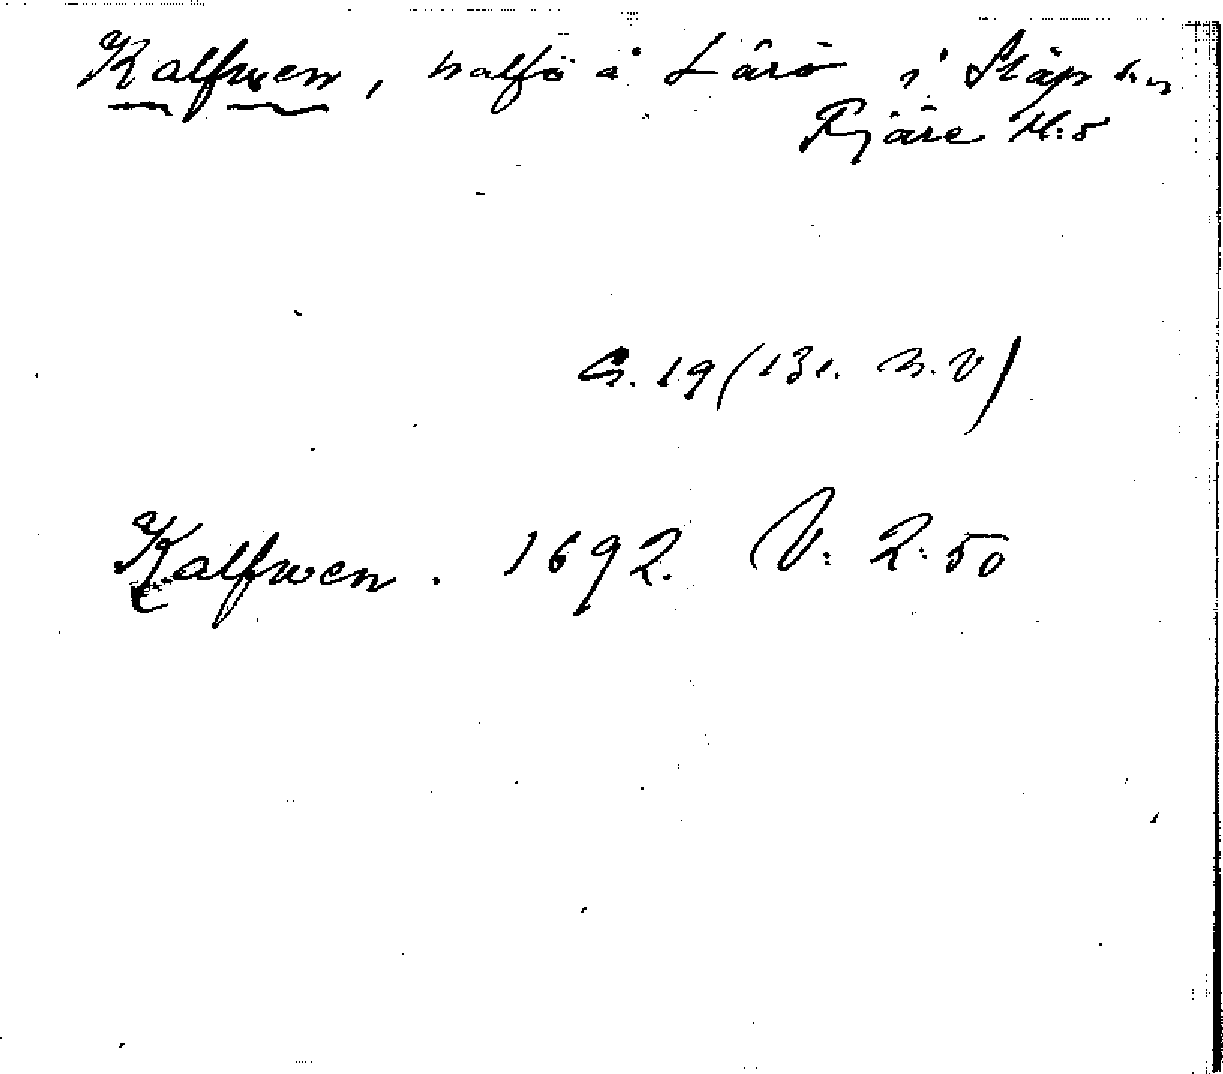 Kalfwen, halfö å Särö i Släp sn
Fjäre H:d
G. 19 (131. n. v)
Kalfwen. 1692. V: 2:50